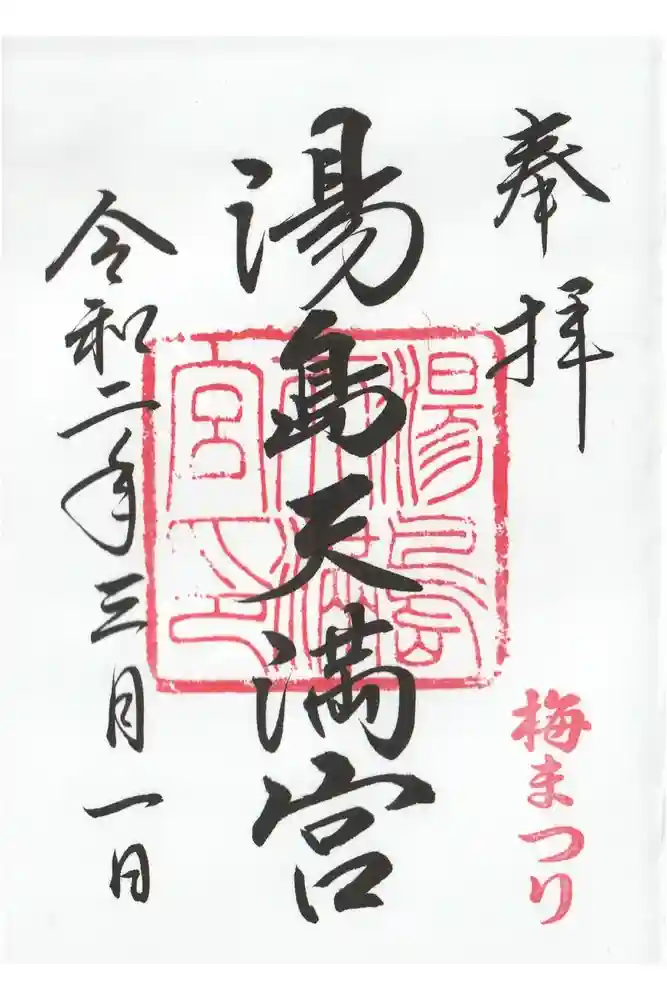 奉拝
梅まつり
湯島天満宮
湯島天満宮之印
令和二年三月一日